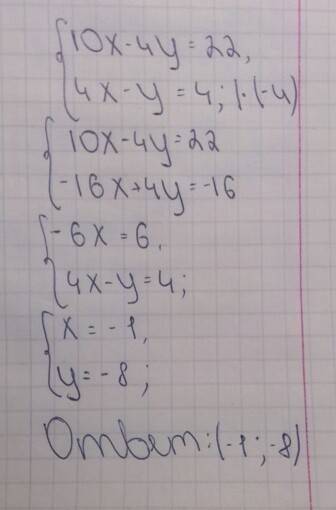 10x-4y=22,
4x-y=4; |·(-4)
10x-4y=22
-16x+4y=-16
-6x=6,
4x-y=4;
x=-1,
y=-8;
Ответ:(-1;-8)